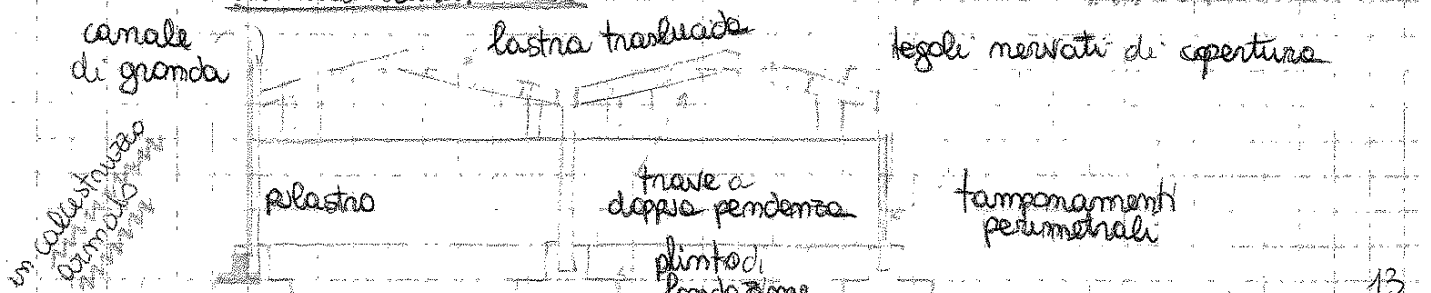 canale
di gronda
lastra traslucida
tegoli nervati di copertura
in calcestruzzo
armato
pilastro
trave a
doppia pendenza
tamponamenti
perimetrali
plinto di
fondazione
13